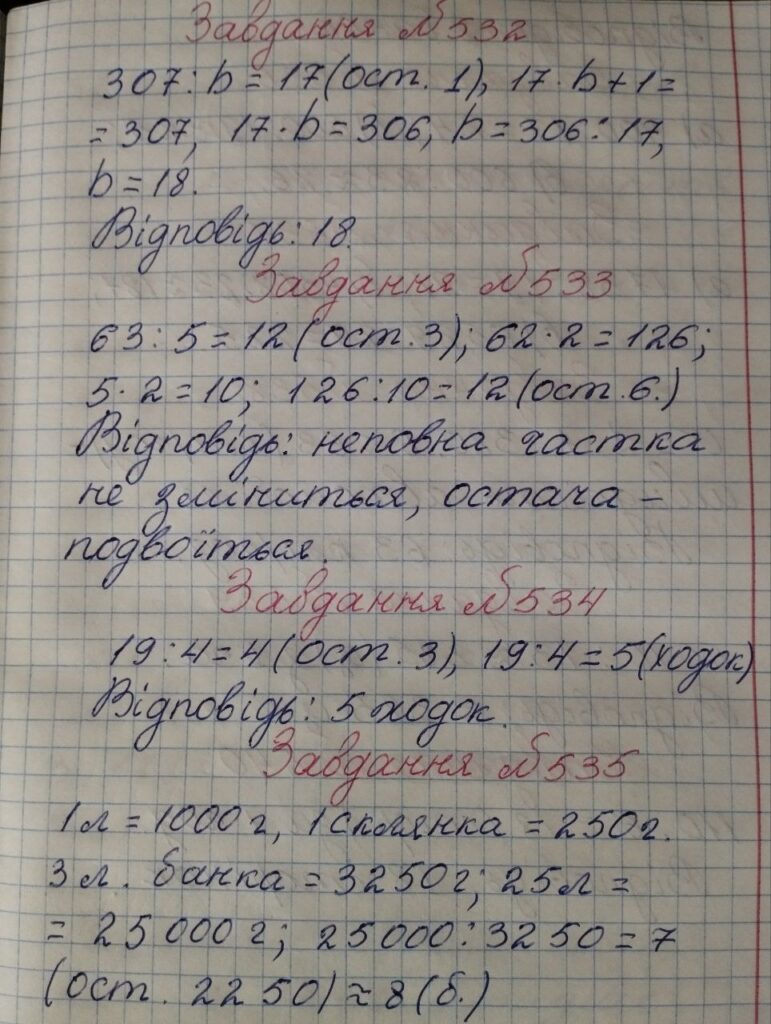 Завдання №532
307 : b = 17 (ост. 1), 17 · b + 1 =
= 307, 17 · b = 306, b = 306 : 17,
b = 18.
Відповідь: 18.
Завдання №533
63 : 5 = 12 (ост. 3); 62 · 2 = 126;
5 · 2 = 10; 126 : 10 = 12 (ост. 6.)
Відповідь: неповна частка
не зміниться, остача –
подвоїться.
Завдання №534
19 : 4 = 4 (ост. 3), 19 : 4 = 5 (ходок)
Відповідь: 5 ходок.
Завдання №535
1 л = 1000 г, 1 склянка = 250 г.
3 л. банка = 3250 г; 25 л =
= 25 000 г; 25000 : 3250 = 7
(ост. 2250) ≈ 8 (б.)